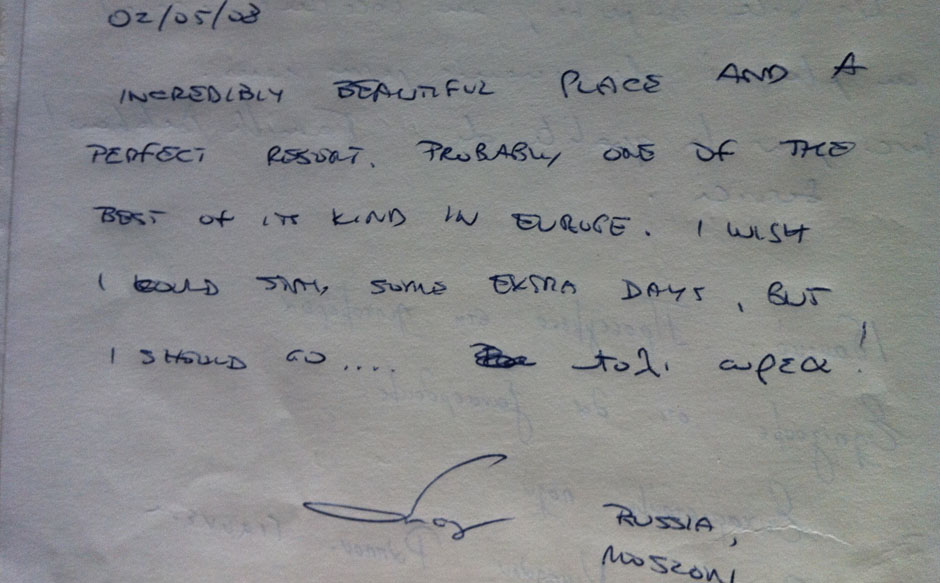 02/05/08
INCREDIBLY BEAUTIFUL PLACE AND A
PERFECT RESORT. PROBABLY ONE OF THE
BEST OF ITS KIND IN EUROPE. I WISH
I COULD STAY SOME EKSTRA DAYS, BUT
I SHOULD GO.... τολι ωρεα!
RUSSIA,